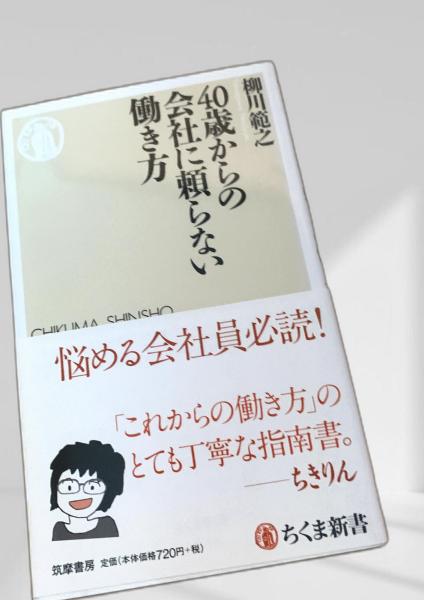 柳川範之
40歳からの
会社に頼らない
働き方
CHIKUMA SHINSHO
悩める会社員必読!
「これからの働き方」の
とても丁寧な指南書。
──ちきりん
筑摩書房 定価(本体価格720円+税)
ちくま新書